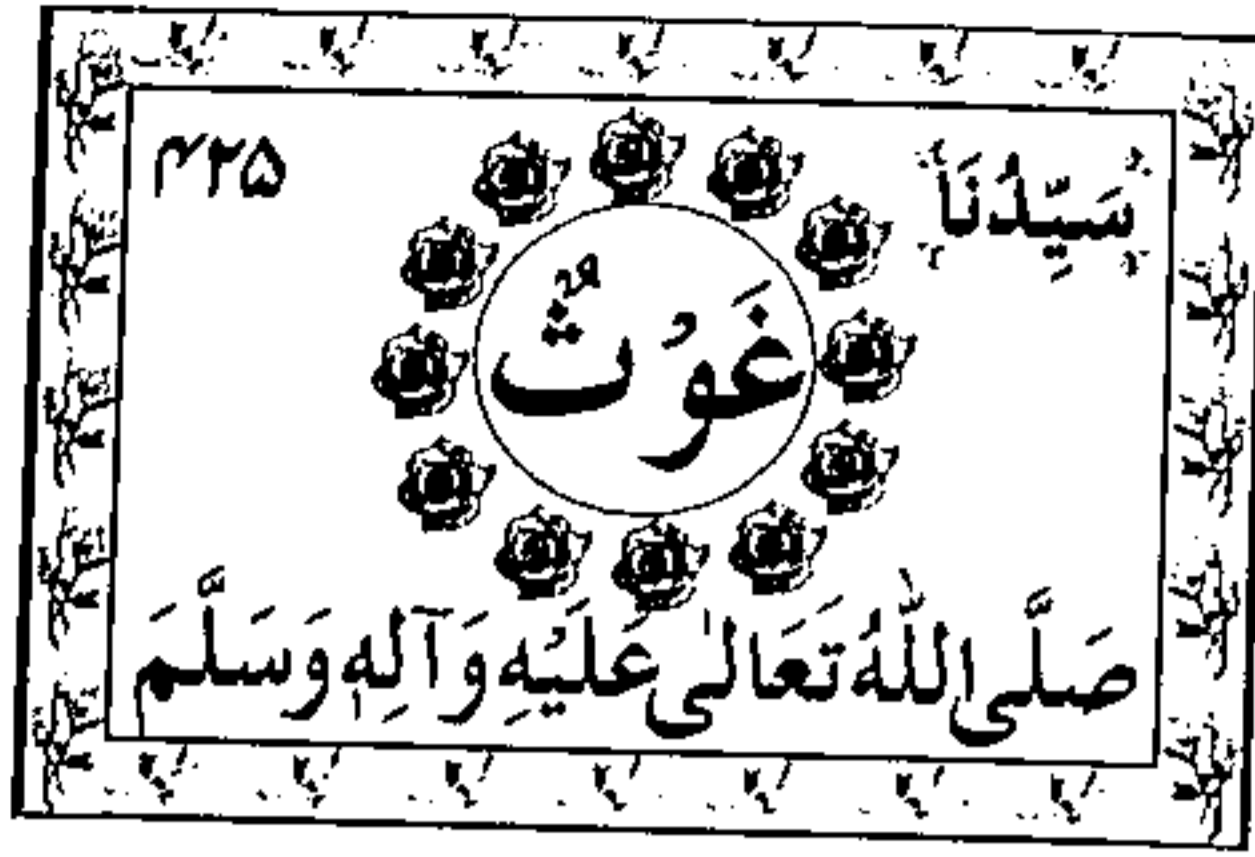 سَيِّدُنَا ۴۲۵
غَوْثٌ
صَلَّى اللّٰهُ تَعَالٰى عَلَيْهِ وَآلِهٖ وَسَلَّمَ